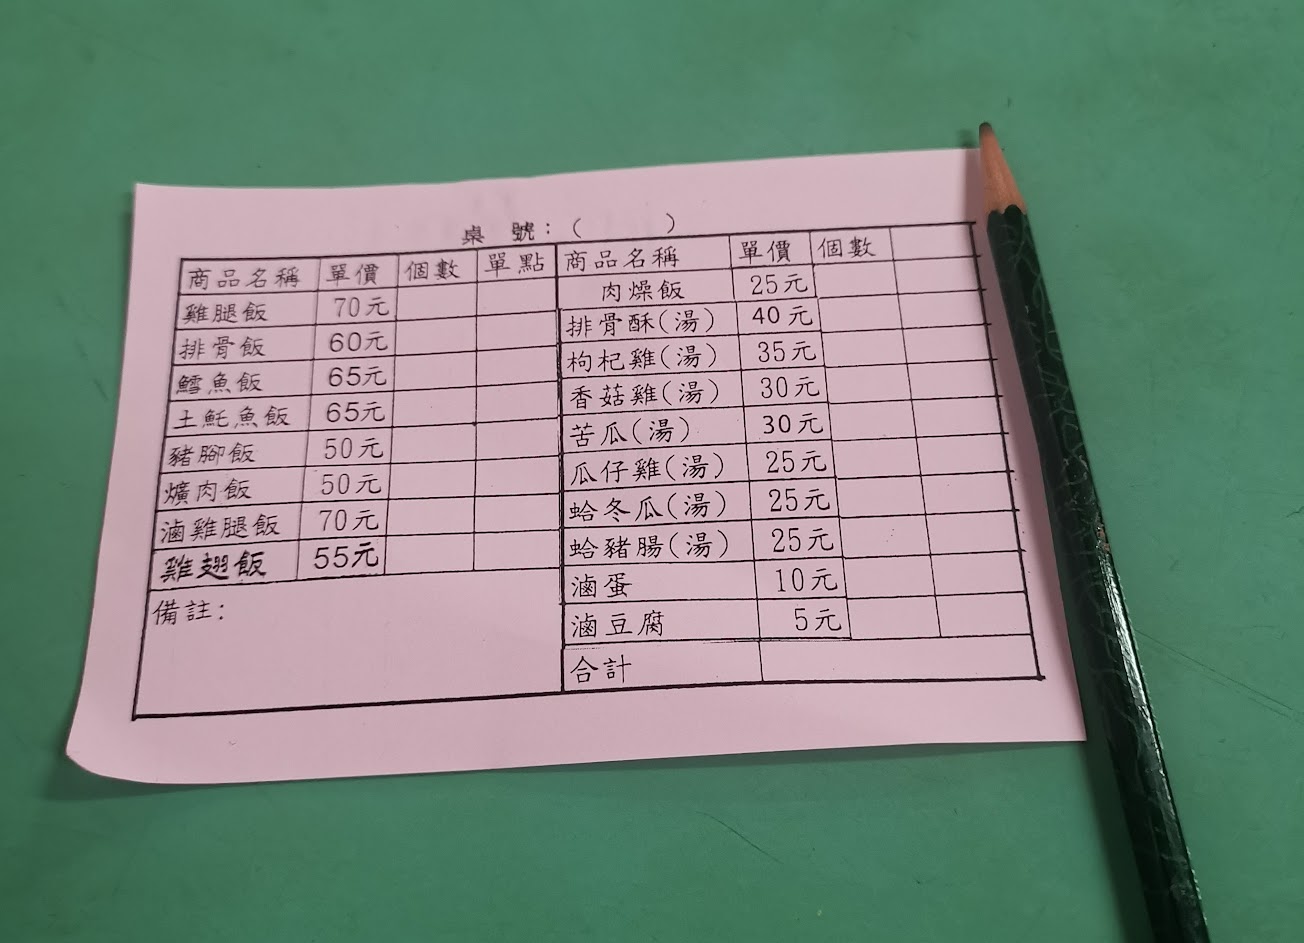 桌 號：（ ）
商品名稱 單價 個數 單點
雞腿飯 70元
排骨飯 60元
鱈魚飯 65元
土魠魚飯 65元
豬腳飯 50元
爌肉飯 50元
滷雞腿飯 70元
雞翅飯 55元
備註：
商品名稱 單價 個數
肉燥飯 25元
排骨酥(湯) 40元
枸杞雞(湯) 35元
香菇雞(湯) 30元
苦瓜(湯) 30元
瓜仔雞(湯) 25元
蛤冬瓜(湯) 25元
蛤豬腸(湯) 25元
滷蛋 10元
滷豆腐 5元
合計